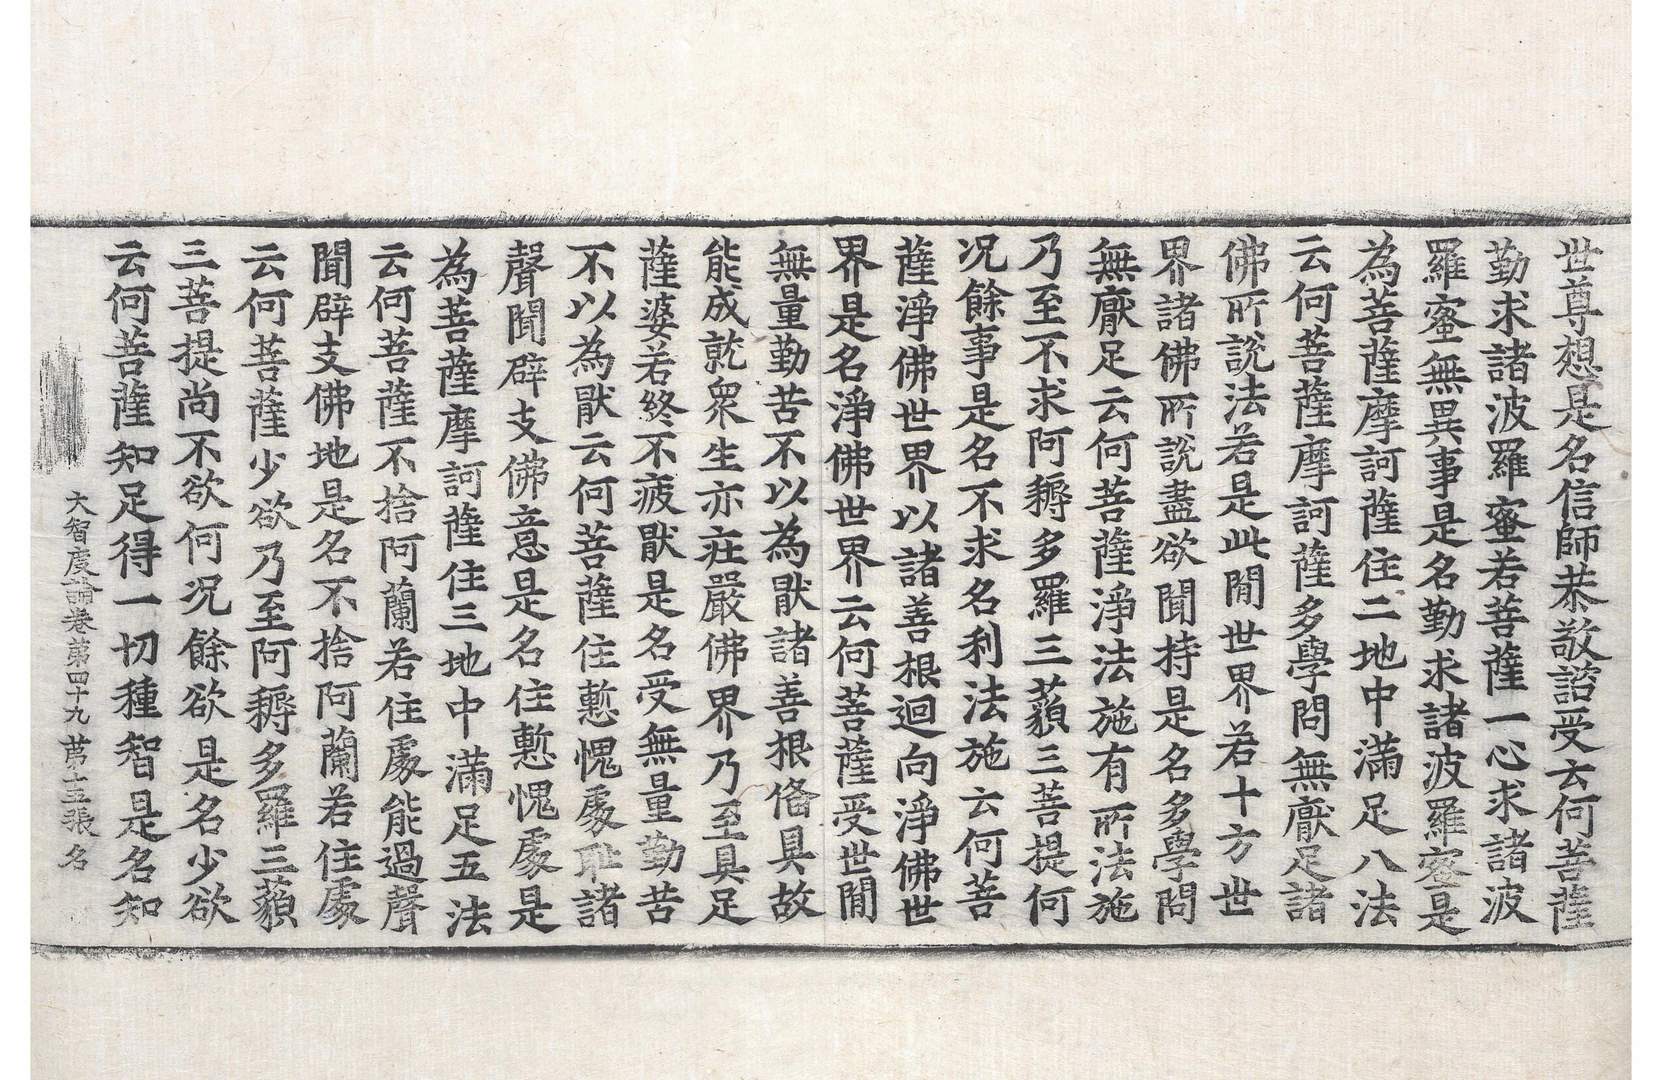 世尊想是名信師恭敬諮受云何菩薩
勤求諸波羅蜜若菩薩一心求諸波
羅蜜無異事是名勤求諸波羅蜜是
為菩薩摩訶薩住二地中滿足八法
云何菩薩摩訶薩多學問無厭足諸
佛所說法若是此閒世界若十方世
界諸佛所說盡欲聞持是名多學問
無厭足云何菩薩淨法施有所法施
乃至不求阿耨多羅三藐三菩提何
况餘事是名不求名利法施云何菩
薩淨佛世界以諸善根迴向淨佛世
界是名淨佛世界云何菩薩受世閒
無量勤苦不以為猒諸善根俻具故
能成就衆生亦莊嚴佛界乃至具足
薩婆若終不疲猒是名受無量勤苦
不以為猒云何菩薩住慙愧處耻諸
聲聞辟支佛意是名住慙愧處是
為菩薩摩訶薩住三地中滿足五法
云何菩薩不捨阿蘭若住處能過聲
聞辟支佛地是名不捨阿蘭若住處
云何菩薩少欲乃至阿耨多羅三藐
三菩提尚不欲何况餘欲是名少欲
云何菩薩知足得一切種智是名知
大智度論卷第四十九 苐十五張 名